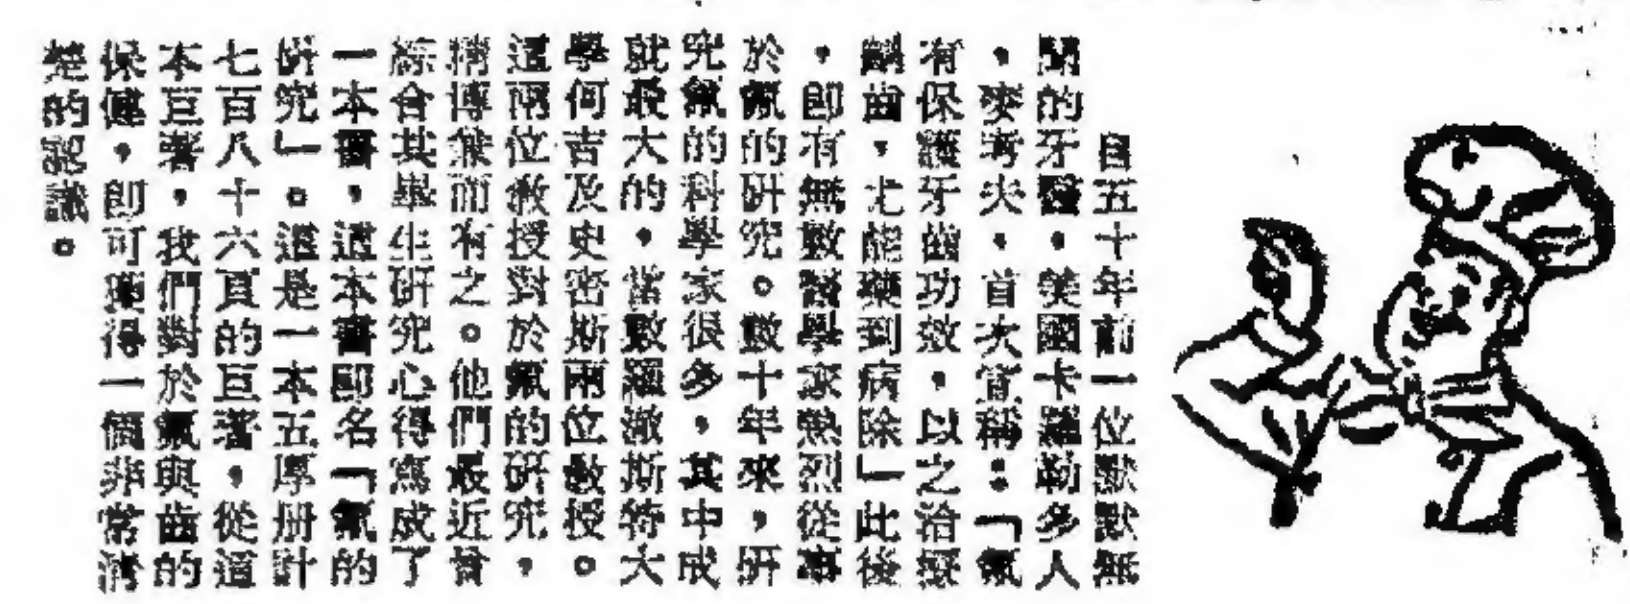 自五十年前一位默默無
聞的牙醫,美國卡羅勒多人
,麥考夫,首次宣稱:「氟
有保護牙齒功效,以之治療
齲齒,尤能藥到病除」此後
,即有無數醫學家熱烈從事
於氟的研究。數十年來,研
究氟的科學家很多,其中成
就最大的,當數羅澈斯特大
學何吉及史密斯兩位教授。
這兩位教授對於氟的研究,
精博兼而有之。他們最近曾
綜合其畢生研究心得寫成了
一本書,這本書即名「氟的
研究」。這是一本五厚册計
七百八十六頁的巨著,從這
本巨著,我們對於氟與齒的
保健,即可獲得一個非常清
楚的認識。